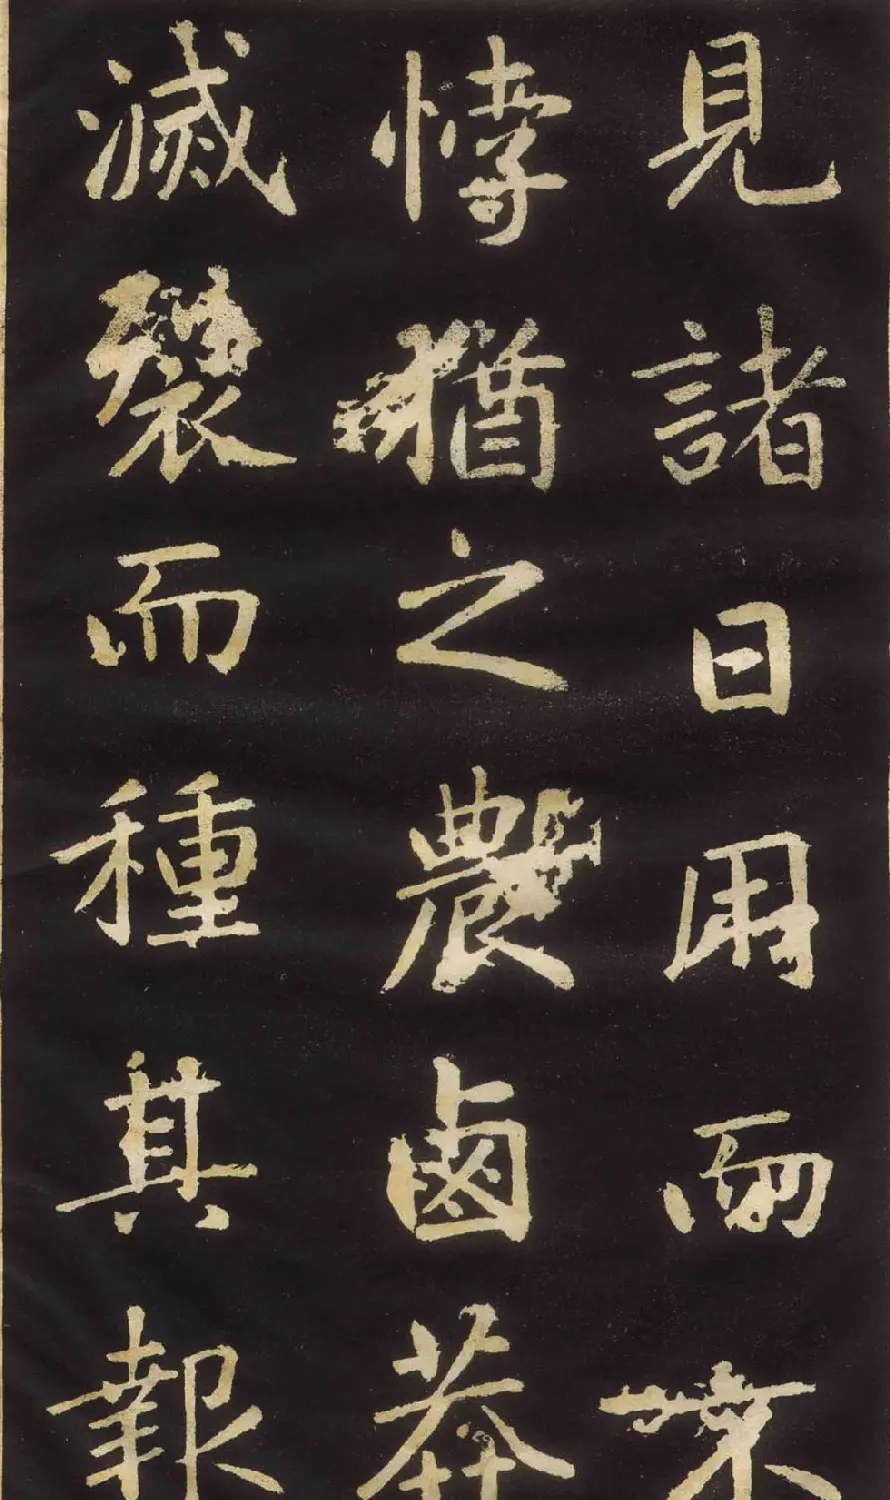 見諸日用而不
悖猶之農鹵莽
滅裂而種其報